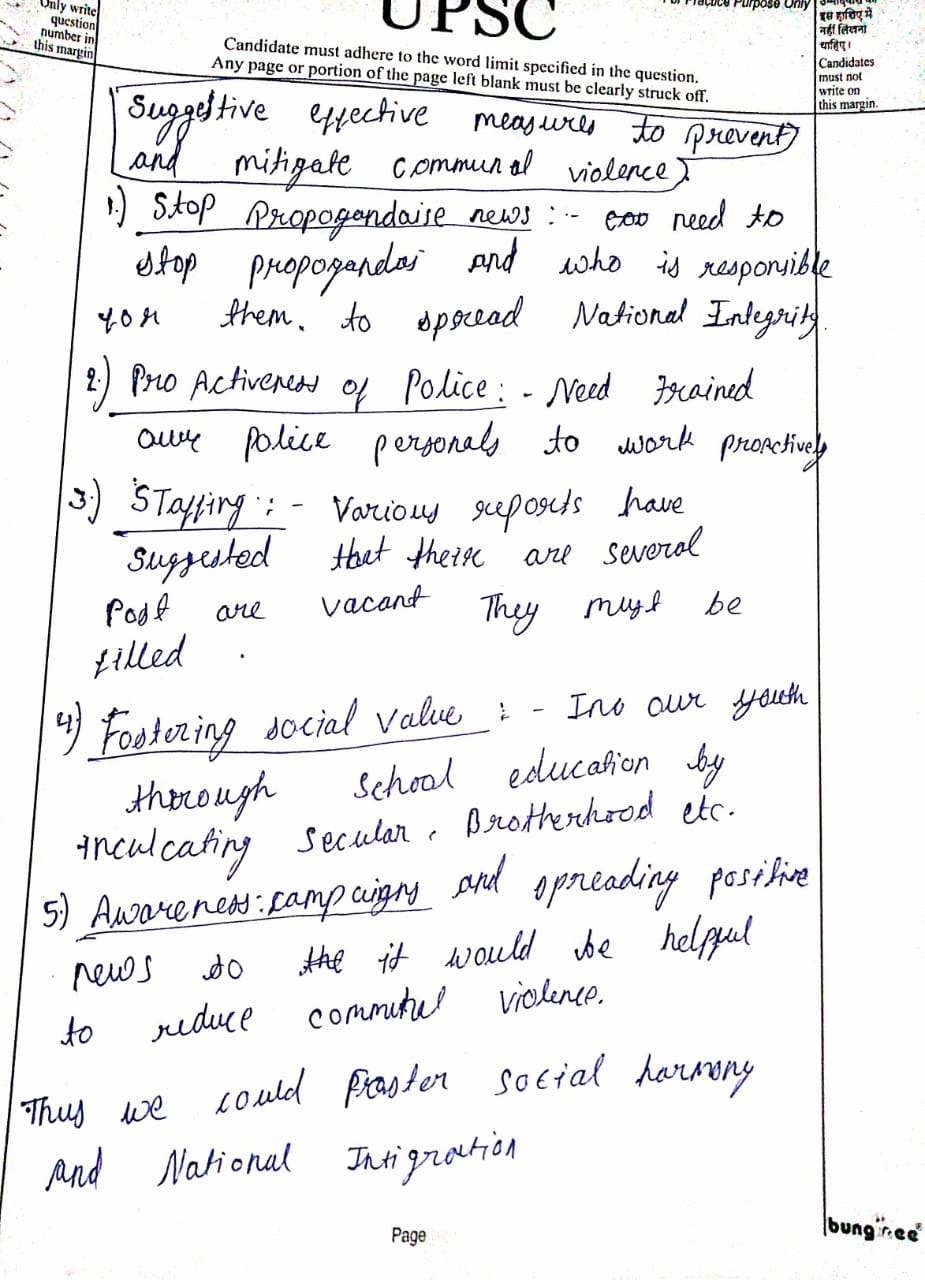 Only write
question
number in
this margin
UPSC
For Practice Purpose Only
Candidate must adhere to the word limit specified in the question.
Any page or portion of the page left blank must be clearly struck off.
इस हाशिए में
नहीं लिखना
चाहिए।
Candidates
must not
write on
this margin.
Suggestive effective measures to prevent
and mitigate communal violence
1.) Stop Propogandaise news :- need to
stop propogandas and who is responsible
for them. to spread National Integrity.
2.) Pro Activeness of Police : - Need trained
our police personals to work proactively
3.) Staffing : - Various reports have
suggested that there are several
Post are vacant They must be
filled .
4) Fostering social value : - Ino our youth
thorough school education by
inculcating secular, Brotherhood etc.
5.) Awareness: campaigns and spreading positive
news so the it would be helpful
to reduce communal violence.
Thus we could Fraster social harmony
and National Intigration
Page